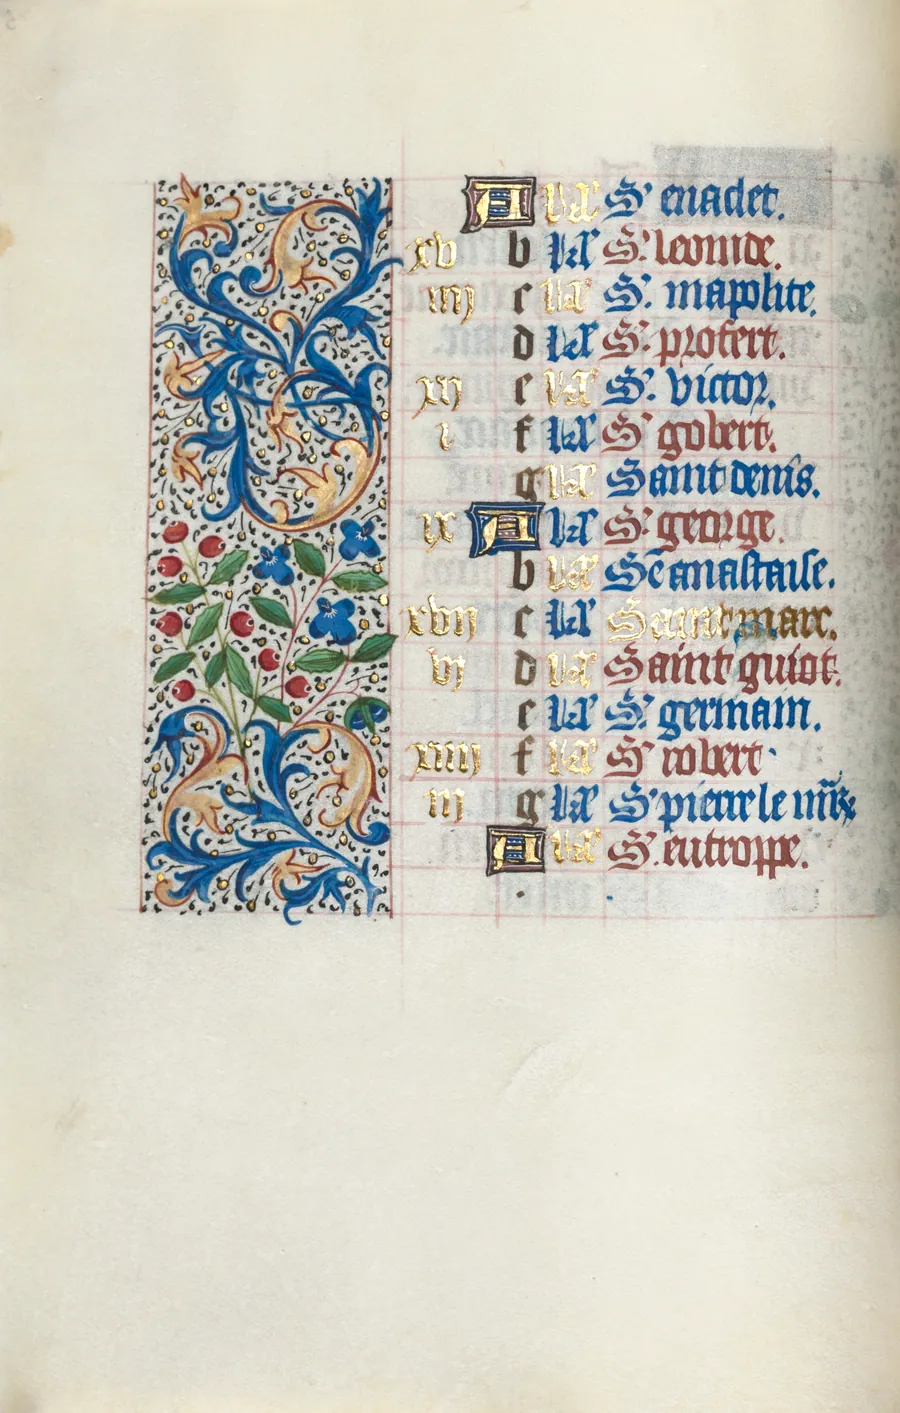 A kl' S' enadet.
xv b kl' S' leonide.
iiij c kl' S'. mapolite.
d kl' S' protert.
xij e kl' S'. victor.
i f kl' S' gobert.
g kl' Saint denis.
ix A kl' S' george.
b kl' Sē anastaise.
xvij c kl' Saint marc.
vj d kl' Saint guiot.
e kl' S' germain.
xiiij f kl' S' robert.
iij g kl' S' pierre le
A kl' S. eutroppe.